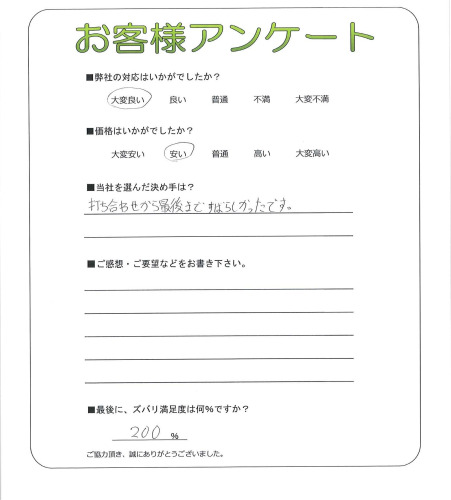 お客様アンケート
■弊社の対応はいかがでしたか？
大変良い 良い 普通 不満 大変不満
■価格はいかがでしたか？
大変安い 安い 普通 高い 大変高い
■当社を選んだ決め手は？
打ち合わせから最後まですばらしかったです。
■ご感想・ご要望などをお書き下さい。
■最後に、ズバリ満足度は何％ですか？
200 %
ご協力頂き、誠にありがとうございました。